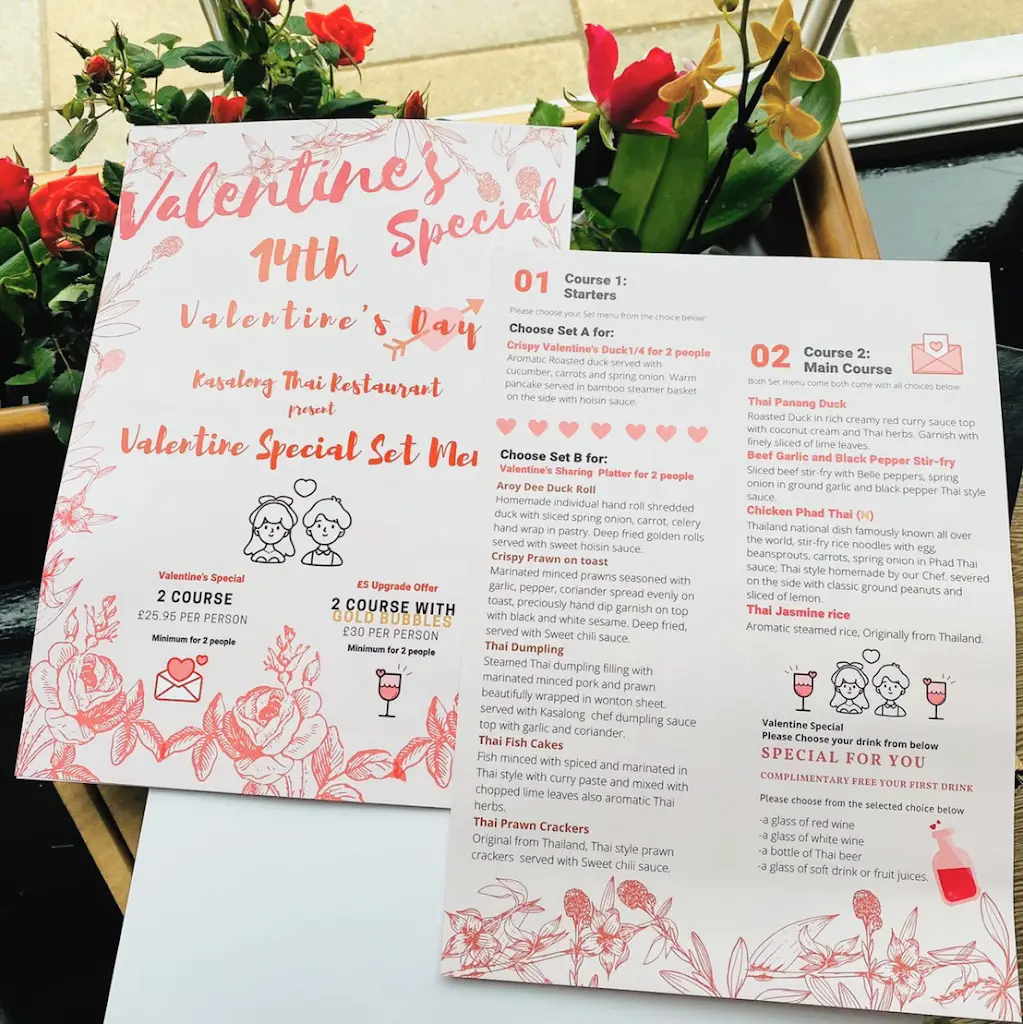 Valentine's
Special
14th
Valentine's Day
Kasalong Thai Restaurant
present
Valentine Special Set
Valentine's Special
2 COURSE
£25.95 PER PERSON
Minimum for 2 people
£5 Upgrade Offer
2 COURSE WITH
GOLD BUBBLES
£30 PER PERSON
Minimum for 2 people
01 Course 1:
Starters
Please choose your Set menu from the choice below
Choose Set A for:
Crispy Valentine's Duck1/4 for 2 people
Aromatic Roasted duck served with
cucumber, carrots and spring onion. Warm
pancake served in bamboo steamer basket
on the side with hoisin sauce.
Choose Set B for:
Valentine's Sharing Platter for 2 people
Aroy Dee Duck Roll
Homemade individual hand roll shredded
duck with sliced spring onion, carrot, celery
hand wrap in pastry. Deep fried golden rolls
served with sweet hoisin sauce.
Crispy Prawn on toast
Marinated minced prawns seasoned with
garlic, pepper, coriander spread evenly on
toast, preciously hand dip garnish on top
with black and white sesame. Deep fried,
served with Sweet chili sauce.
Thai Dumpling
Steamed Thai dumpling filling with
marinated minced pork and prawn
beautifully wrapped in wonton sheet.
served with Kasalong chef dumpling sauce
top with garlic and coriander.
Thai Fish Cakes
Fish minced with spiced and marinated in
Thai style with curry paste and mixed with
chopped lime leaves also aromatic Thai
herbs.
Thai Prawn Crackers
Original from Thailand, Thai style prawn
crackers served with Sweet chili sauce.
02 Course 2:
Main Course
Both Set menu come both come with all choices below
Thai Panang Duck
Roasted Duck in rich creamy red curry sauce top
with coconut cream and Thai herbs. Garnish with
finely sliced of lime leaves.
Beef Garlic and Black Pepper Stir-fry
Sliced beef stir-fry with Belle peppers, spring
onion in ground garlic and black pepper Thai style
sauce.
Chicken Phad Thai (N)
Thailand national dish famously known all over
the world, stir-fry rice noodles with egg,
beansprouts, carrots, spring onion in Phad Thai
sauce; Thai style homemade by our Chef. severed
on the side with classic ground peanuts and
sliced of lemon.
Thai Jasmine rice
Aromatic steamed rice, Originally from Thailand.
Valentine Special
Please Choose your drink from below
SPECIAL FOR YOU
COMPLIMENTARY FREE YOUR FIRST DRINK
Please choose from the selected choice below
-a glass of red wine
-a glass of white wine
-a bottle of Thai beer
-a glass of soft drink or fruit juices.